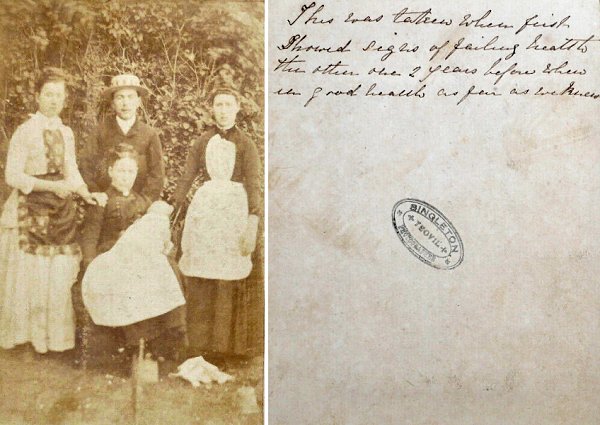 This was taken when first
Showed signs of failing health
the other one 2 years before when
in good health as far as we knew
SINGLETON
YEOVIL